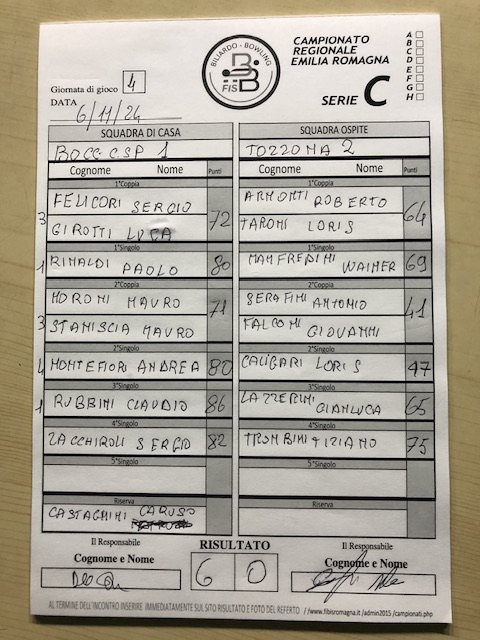 BILIARDO - BOWLING
FISBB
CAMPIONATO
REGIONALE
EMILIA ROMAGNA
SERIE C
A
B
C
D
E
F
G
H
Giornata di gioco 4
DATA 6/11/24
SQUADRA DI CASA SQUADRA OSPITE
BOCC. C.SP 1 TOZZONA 2
Cognome Nome Punti Cognome Nome Punti
1°Coppia 1°Coppia
3 FELICORI SERGIO 72 ARMONTI ROBERTO 64
GIROTTI LUCA TARONI LORIS
1°Singolo 1°Singolo
1 RINALDI PAOLO 80 MANFREDINI WAINER 69
2°Coppia 2°Coppia
MORONI MAURO 71 SERAFINI ANTONIO 41
3 STANISCIA MAURO FALCONI GIOVANNI
2°Singolo 2°Singolo
4 MONTEFIORI ANDREA 80 CALIGARI LORIS 47
3°Singolo 3°Singolo
1 RUBBINI CLAUDIO 86 LAZZERINI GIANLUCA 65
4°Singolo 4°Singolo
ZACCHIROLI SERGIO 82 TROMBINI TIZIANO 75
5°Singolo 5°Singolo
Riserva Riserva
CASTAGNINI CARUSO
Il Responsabile RISULTATO Il Responsabile
Cognome e Nome 6 0 Cognome e Nome
AL TERMINE DELL'INCONTRO INSERIRE IMMEDIATAMENTE SUL SITO RISULTATO E FOTO DEL REFERTO //www.fibisromagna.it/admin2015/campionati.php